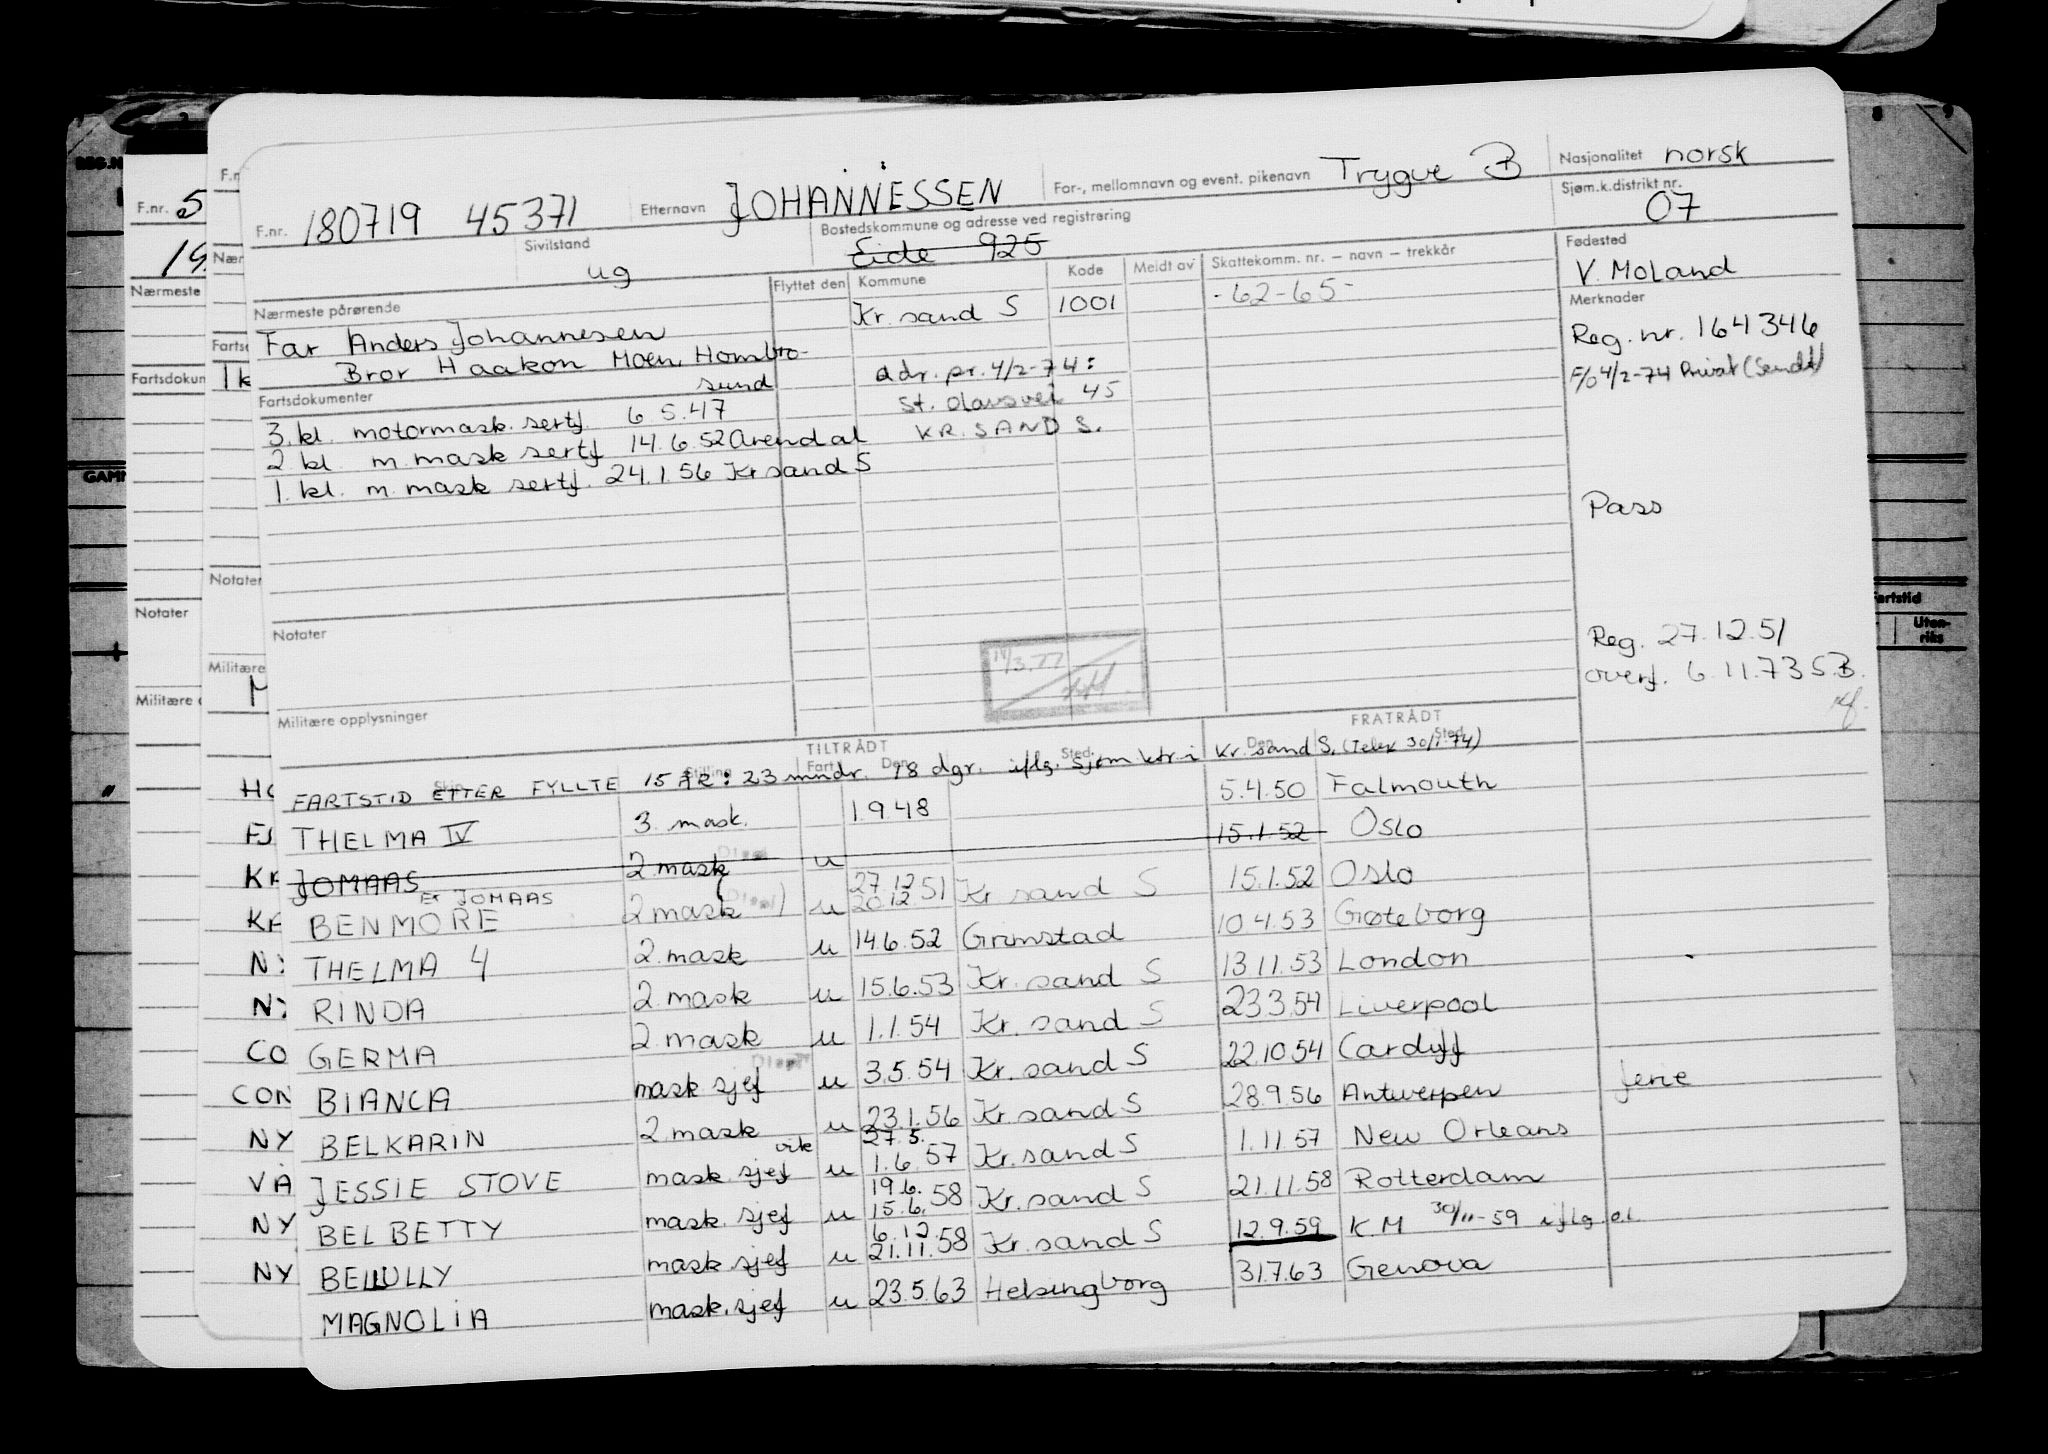 F.nr. 180719 45371 Etternavn JOHANNESSEN For-, mellomnavn og event. pikenavn Trygve B Nasjonalitet norsk
Sivilstand ug Bostedskommune og adresse ved registrering Eide 925 Sjøm.k.distrikt nr. 07
Nærmeste pårørende Flyttet den Kommune Kode Meldt av Skattekomm. nr. – navn – trekkår Fødested V. Moland
Far Anders Johannesen Kr. sand S 1001 -62-65- Merknader
Bror Haakon Moen, Hombor-
sund
adr. pr. 4/2-74:
St. Olavsvei 45
KR. SAND S.
Reg. nr. 164346
F/o 4/2-74 Privat (Sendt)
Fartsdokumenter
3. kl. motormask. sertf. 6 5.47
2 kl. m. mask sertf 14.6.52 Arendal
1. kl. m. mask sertf. 24.1.56 Kr sand S
Pass
Notater
14/3.77
Reg. 27.12.51
overf. 6.11.73 S.B.
Militære opplysninger
TILTRÅDT FRATRÅDT
Skip Stilling Fart Den Sted Den Sted
FARTSTID ETTER FYLLTE 15 ÅR: 23 mndr. 18 dgr. iflg. sjøm ktr i Kr. sand S. (Telex 30/1-74)
THELMA IV 3 mask. 1948 5.4.50 Falmouth
JOMAAS 2 mask u 15.1.52 Oslo
Ex JOMAAS
BENMORE 2 mask u 27.12.51 20.12 Kr sand S 15.1.52 Oslo
THELMA 4 2 mask u 14.6.52 Grimstad 10.4.53 Gøteborg
RINDA 2 mask u 15.6.53 Kr. sand S 13.11.53 London
GERMA 2 mask u 1.1.54 Kr. sand S 23.3.54 Liverpool
BIANCA mask sjef u 3.5.54 Kr. sand S 22.10.54 Cardiff
BELKARIN 2 mask u 23.1.56 Kr sand S 28.9.56 Antwerpen
JESSIE STOVE mask. sjef vik u 27.5. 1.6.57 Kr. sand S 1.11.57 New Orleans
BELBETTY mask. sjef u 19.6. 15.6.58 Kr. sand S 21.11.58 Rotterdam
BELLULLY mask sjef u 6.12. 21.11.58 Kr. sand S 12.9.59 K.M 30/11-59 iflg.
MAGNOLIA mask. sjef u 23.5.63 Helsingborg 31.7.63 Genova